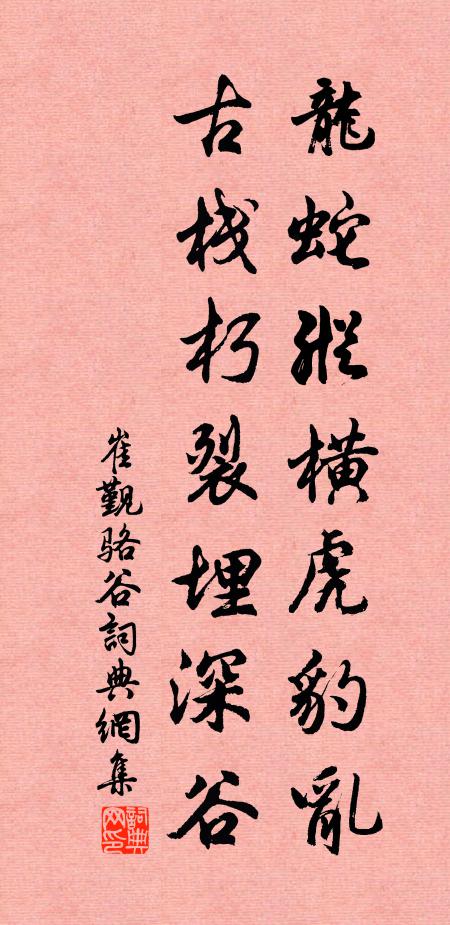 龍蛇縱橫虎豹亂
古栈朽裂埋深谷
崔觐骆谷詞典網集
詞典网印